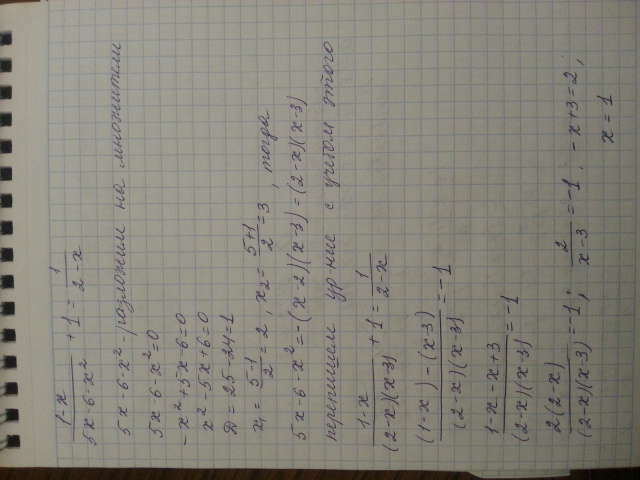 1-x / 5x-6-x² + 1 = 1 / 2-x
5x-6-x² - разложим на множители
5x-6-x²=0
-x²+5x-6=0
x²-5x+6=0
D=25-24=1
x₁ = 5-1 / 2 = 2, x₂ = 5+1 / 2 = 3, тогда
5x-6-x² = -(x-2)(x-3) = (2-x)(x-3)
перепишем ур-ние с учетом этого
1-x / (2-x)(x-3) + 1 = 1 / 2-x
(1-x)-(x-3) / (2-x)(x-3) = -1
1-x-x+3 / (2-x)(x-3) = -1
2(2-x) / (2-x)(x-3) = -1; 2 / x-3 = -1; -x+3=2;
x=1